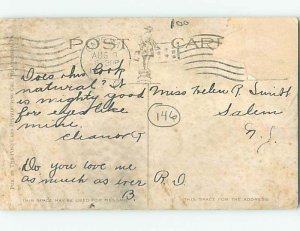 100
POST CARD
AUG
Does this look
natural? It
is mighty good
for eyes like
mine.
Eleanor T
Do you love me
as much as ever
B.
Miss Helen P. Smith
Salem
N.J.
146
R.D.
THIS SPACE MAY BE USED FOR MESSAGE
THIS SPACE FOR THE ADDRESS